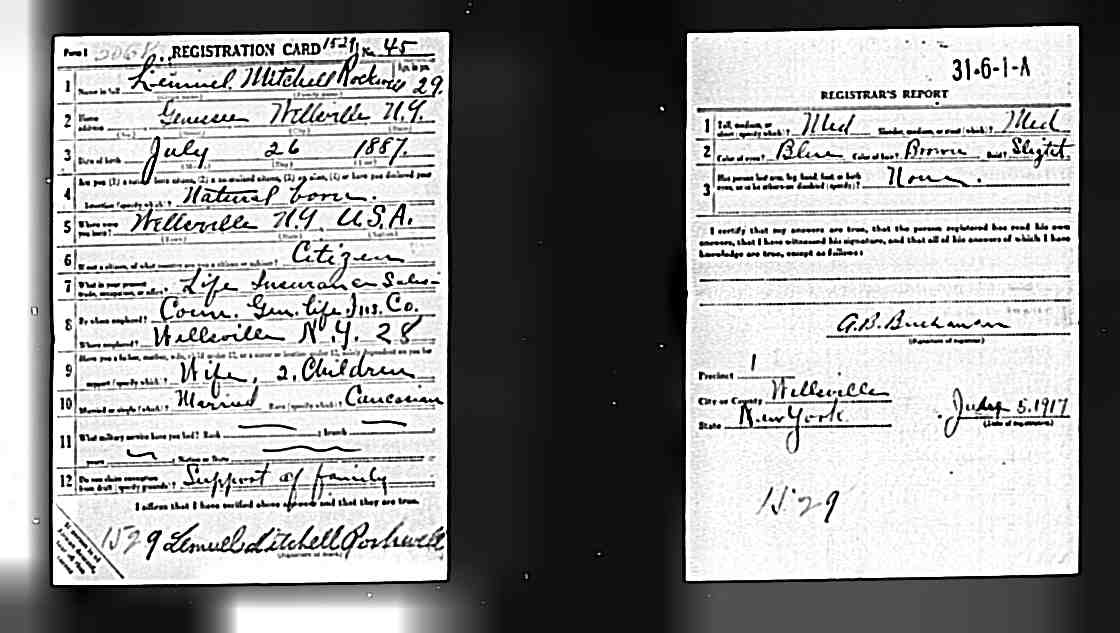 Form 1 506 REGISTRATION CARD 1529 No. 45
1 Name in full Lemuel Mitchell Rockwell Age, in yrs. 29
2 Home address Genesee Wellsville N.Y.
(No.) (Street) (City) (State)
3 Date of birth July 26 1887.
(Month) (Day) (Year)
4 Are you (1) a natural born citizen, (2) a naturalized citizen, (3) an alien, (4) or have you declared your
intention (specify which)? Natural born.
5 Where were you born? Wellsville N.Y. U.S.A.
(Town) (State) (Nation)
6 If not a citizen, of what country are you a citizen or subject? Citizen
7 What is your present trade, occupation, or office? Life Insurance Sales-
8 By whom employed? Conn. Gen. Life Ins. Co.
Where employed? Wellsville N.Y. 28
9 Have you a father, mother, wife, child under 12, or a sister or brother under 12, solely dependent on you for
support (specify which)? Wife, 2 Children
10 Married or single (which)? Married Race (specify which)? Caucasian
11 What military service have you had? Rank ; branch
years ; Nation or State
12 Do you claim exemption from draft (specify grounds)? Support of family
I affirm that I have verified above answers and that they are true.
1529 Lemuel Mitchell Rockwell
(Signature or mark)
31-6-1-A
REGISTRAR'S REPORT
1 Tall, medium, or short (specify which)? Med Slender, medium, or stout (which)? Med
2 Color of eyes? Blue Color of hair? Brown Bald? Slight.
3 Has person lost arm, leg, hand, foot, or both eyes, or is he otherwise disabled (specify)? None.
I certify that my answers are true, that the person registered has read his own
answers, that I have witnessed his signature, and that all of his answers of which I have
knowledge are true, except as follows:
A.B. Buchanan
(Signature of registrar)
Precinct 1
City or County Wellsville
State New York June 5. 1917
(Date of registration)
1529